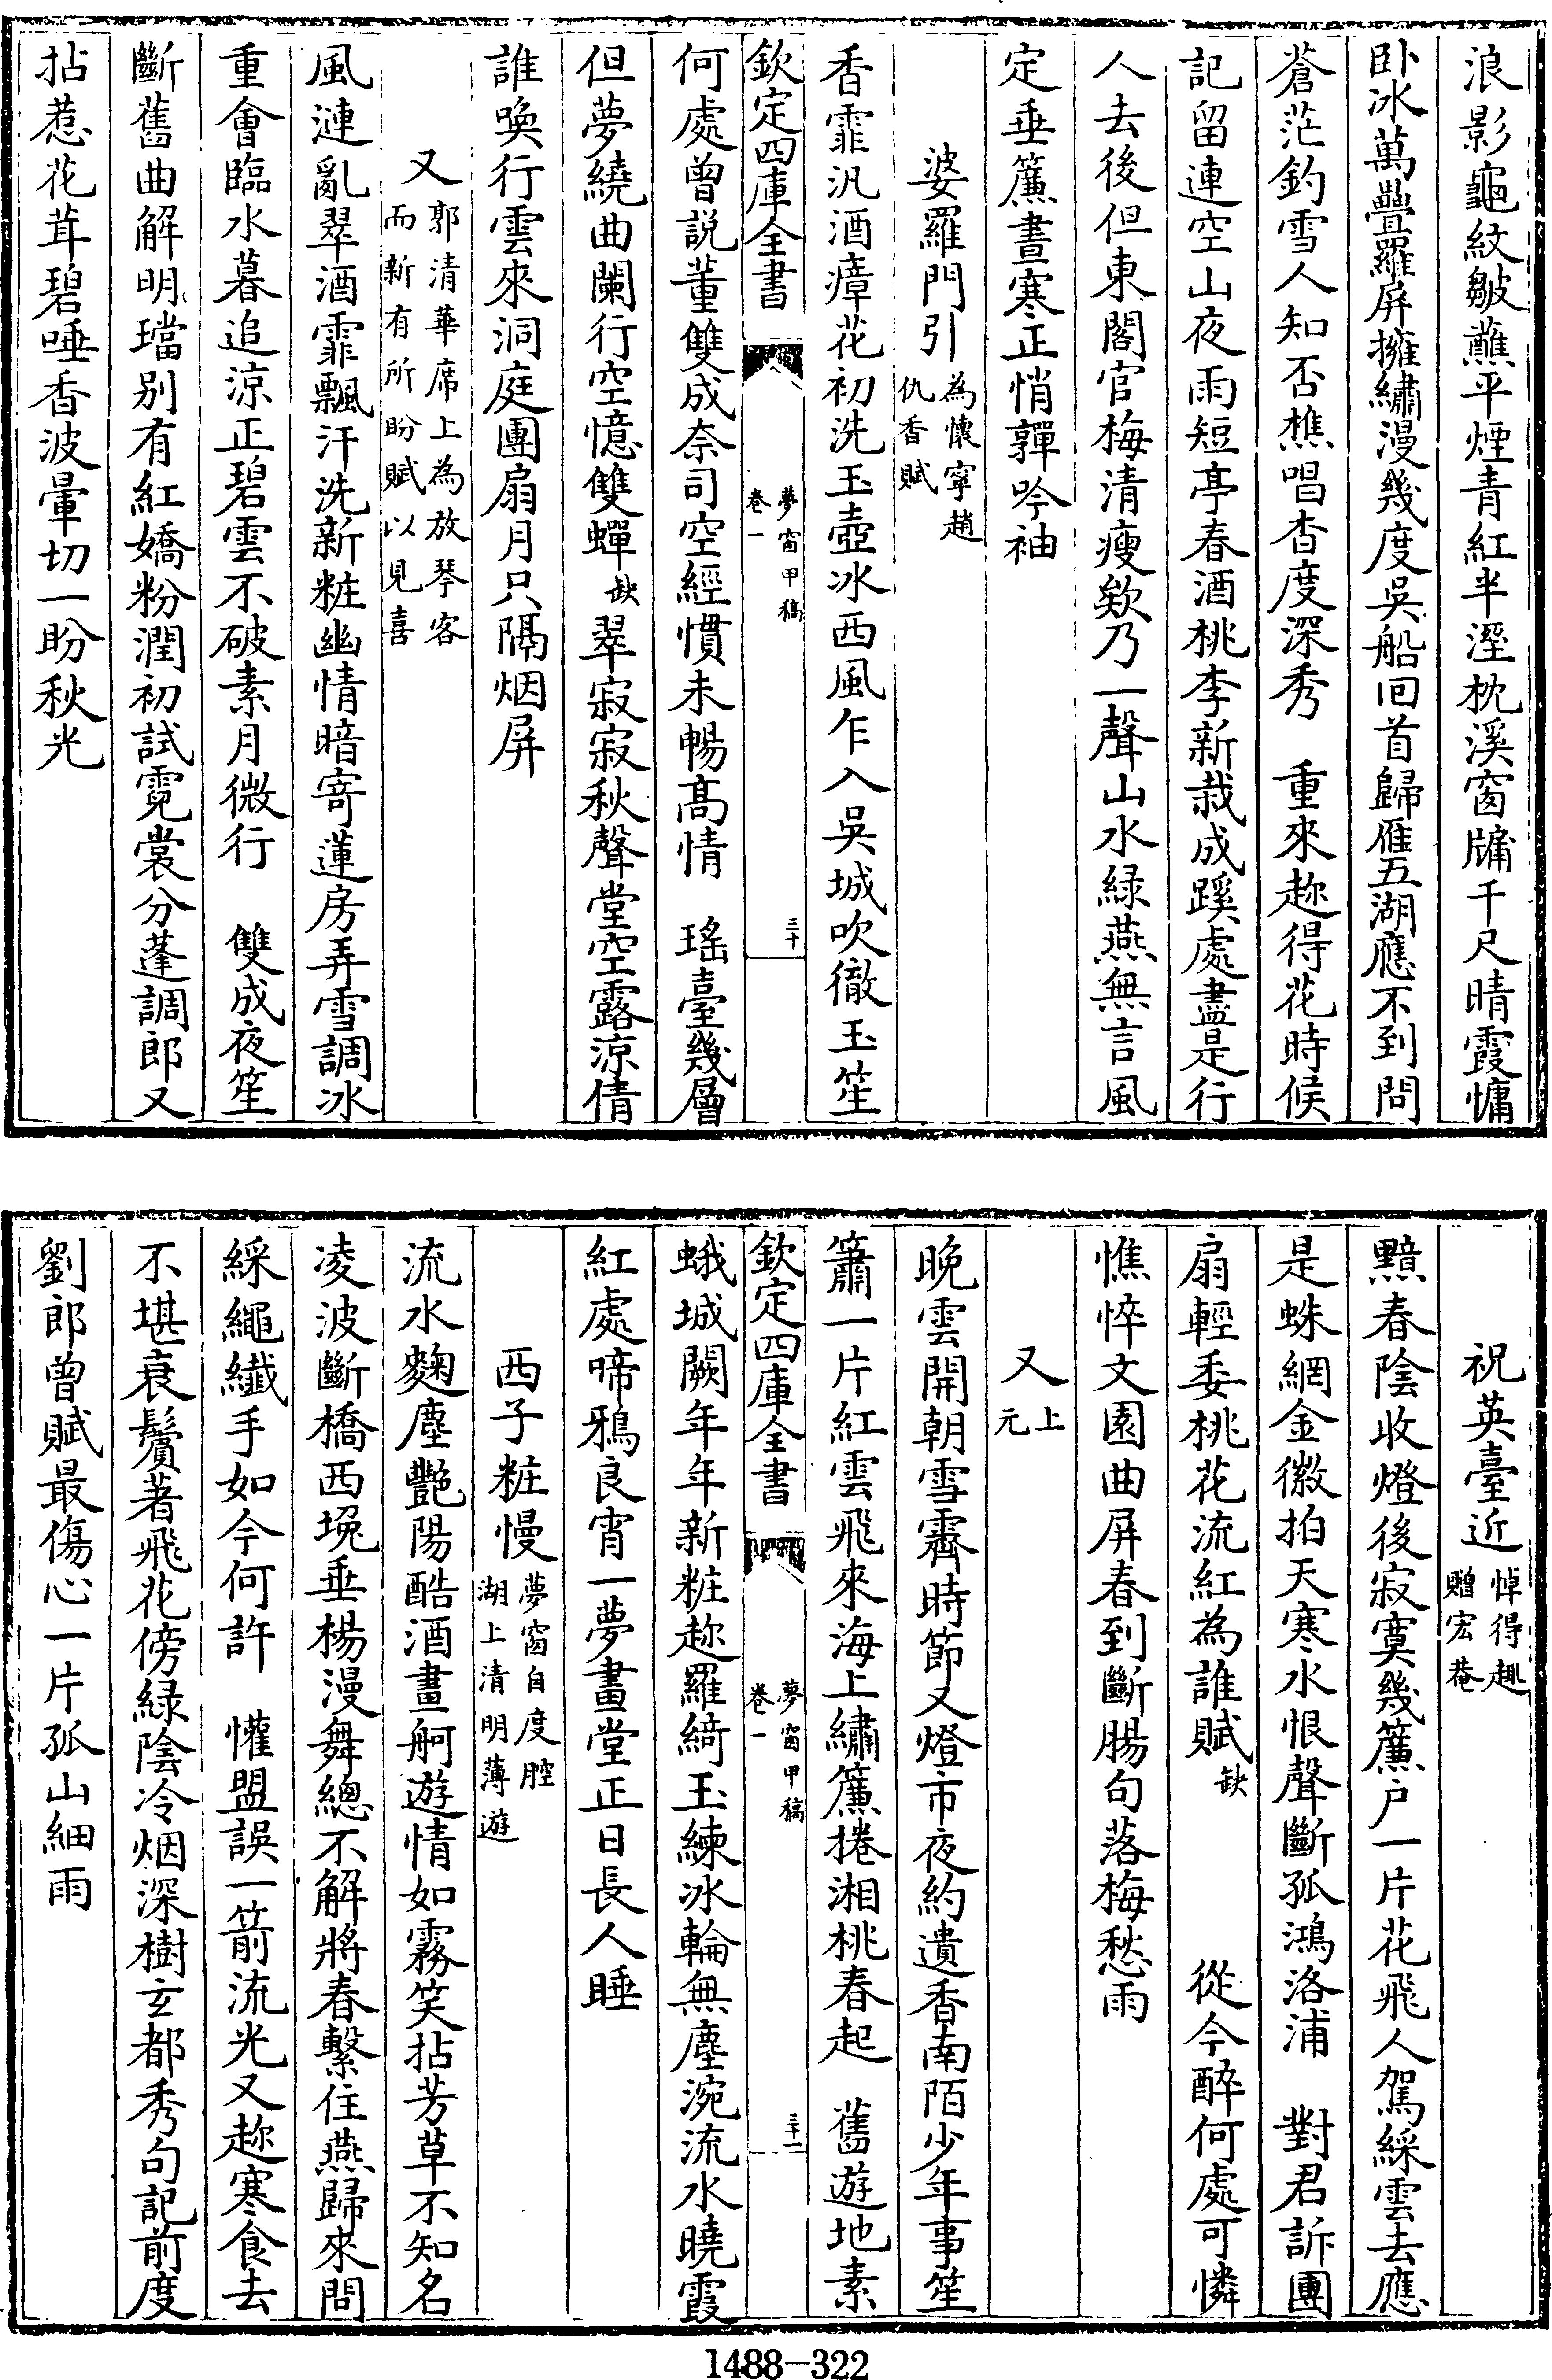 浪影龜紋皺蘸平煙青紅半溼枕溪窗牖千尺晴霞慵
卧冰萬疊羅屏擁繡漫幾度吳船回首歸雁五湖應不到問
蒼茫釣雪人知否樵唱杳度深秀　重來趂得花時候
記留連空山夜雨短亭春酒桃李新栽成蹊處盡是行
人去後但東閣官梅清瘦欸乃一聲山水緑燕無言風
定垂簾晝寒正悄嚲吟袖
婆羅門引為懷寧趙仇香賦
香霏汎酒瘴花初洗玉壺冰西風乍入吳城吹徹玉笙
欽定四庫全書
夢窗甲稿
卷一
三十
何處曾説董雙成奈司空經慣未暢髙情　瑤臺幾層
但夢繞曲闌行空憶雙蟬缺翠寂寂秋聲堂空露涼倩
誰喚行雲來洞庭團扇月只隔烟屏
又郭清華席上為放琴客而新有所盼賦以見喜
風漣亂翠酒霏飄汗洗新粧幽情暗寄蓮房弄雪調冰
重會臨水暮追涼正碧雲不破素月微行　雙成夜笙
斷舊曲解明璫别有紅嬌粉潤初試霓裳分蓬調郎又
拈惹花茸碧唾香波暈切一盼秋光
祝英臺近悼得趣贈宏菴
黯春陰收燈後寂寞幾簾户一片花飛人駕綵雲去應
是蛛網金徽拍天寒水恨聲斷孤鴻洛浦　對君訴團
扇輕委桃花流紅為誰賦缺　從今醉何處可憐
憔悴文園曲屏春到斷腸句落梅愁雨
又上元
晚雲開朝雪霽時節又燈市夜約遺香南陌少年事笙
簫一片紅雲飛來海上繡簾捲湘桃春起　舊遊地素
欽定四庫全書
夢窗甲稿
卷一
三十一
蛾城闕年年新粧趂羅綺玉練冰輪無塵涴流水曉霞
紅處啼鴉良宵一夢畫堂正日長人睡
西子粧慢夢窗自度腔湖上清明薄遊
流水麴塵豔陽酷酒畫舸遊情如霧笑拈芳草不知名
凌波斷橋西堍垂楊漫舞總不解將春繫住燕歸來問
綵繩纖手如今何許　懽盟誤一箭流光又趂寒食去
不堪衰鬢著飛花傍緑陰冷烟深樹玄都秀句記前度
劉郎曾賦最傷心一片孤山細雨
1488-322